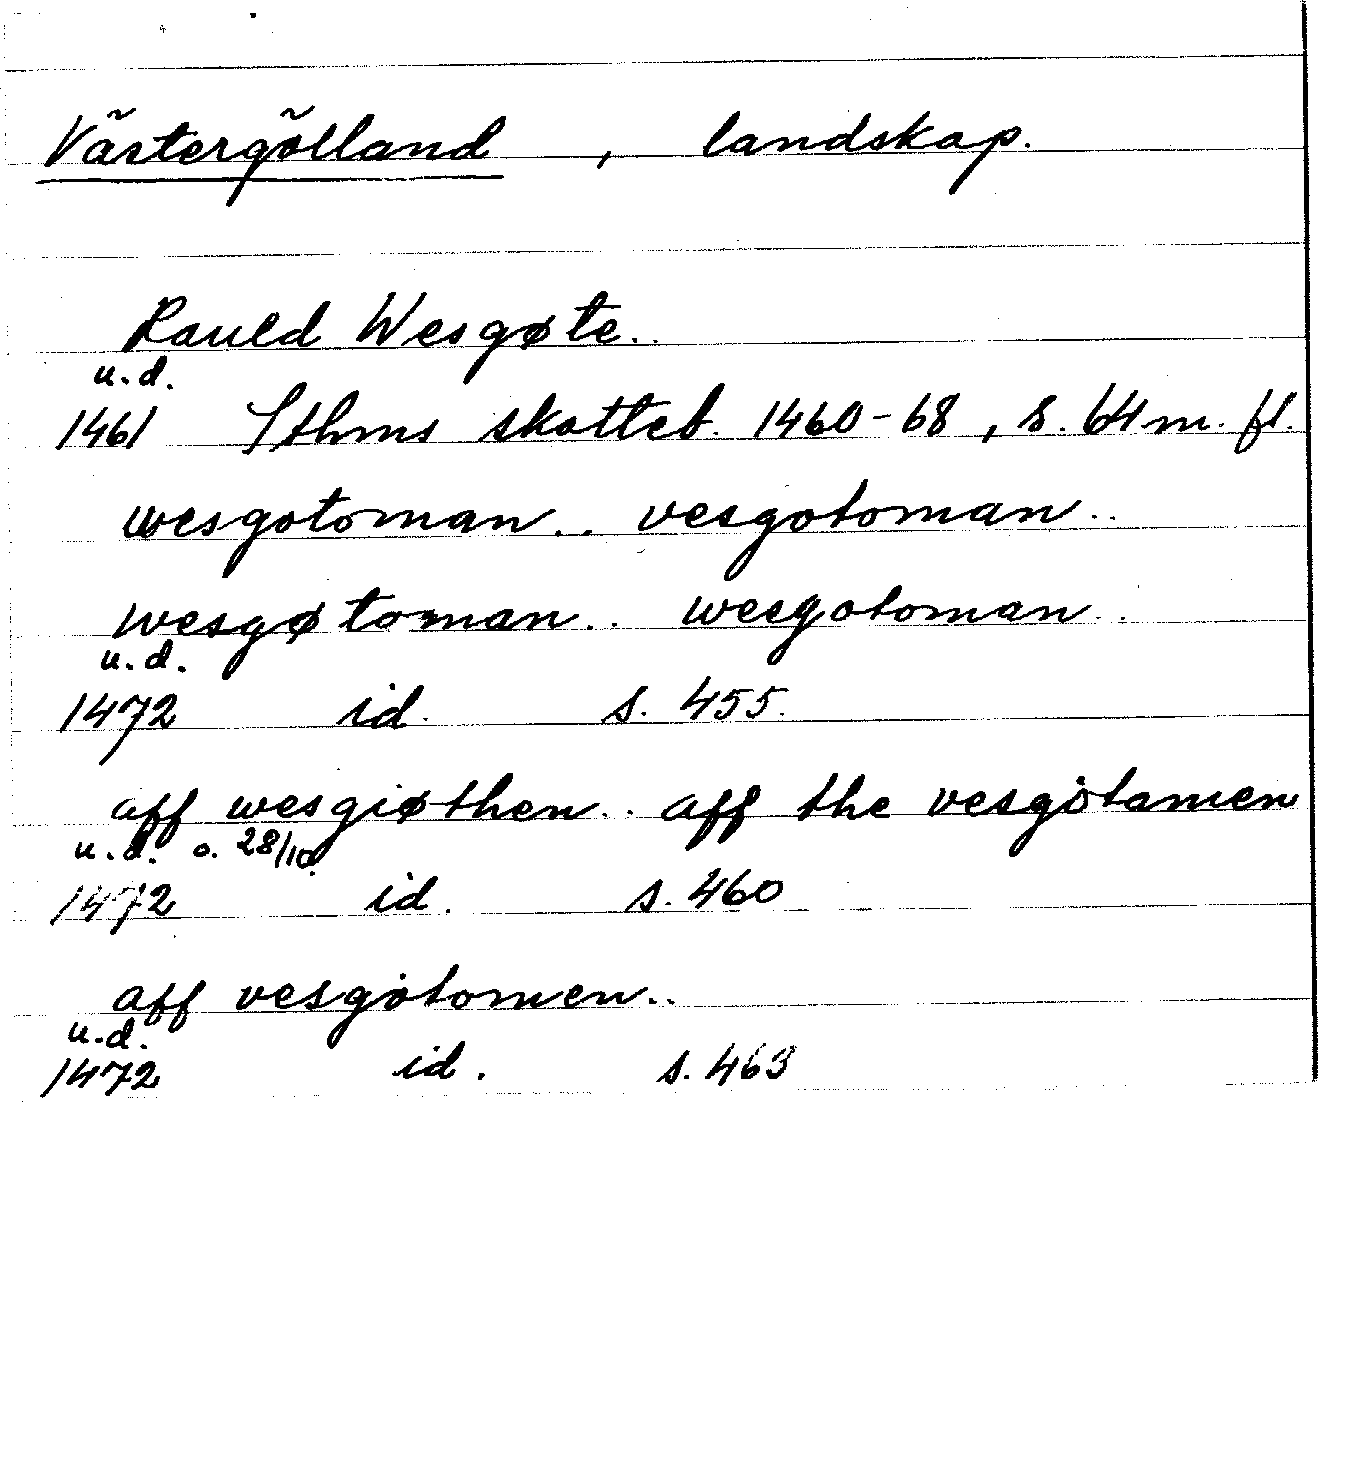 Västergötland , landskap.
Raueld Wesgøte..
u.d.
1461 Sthms skatteb. 1460-68, s. 64 m. fl.
wesgotoman.. vesgotoman..
wesgøtoman.. wesgotoman..
u.d.
1472 id. s. 455.
aff wesgiøthen.. aff the vesgötamen
u.d. o. 28/10.
1472 id. s. 460
aff vesgötomen..
u.d.
1472 id. s. 463